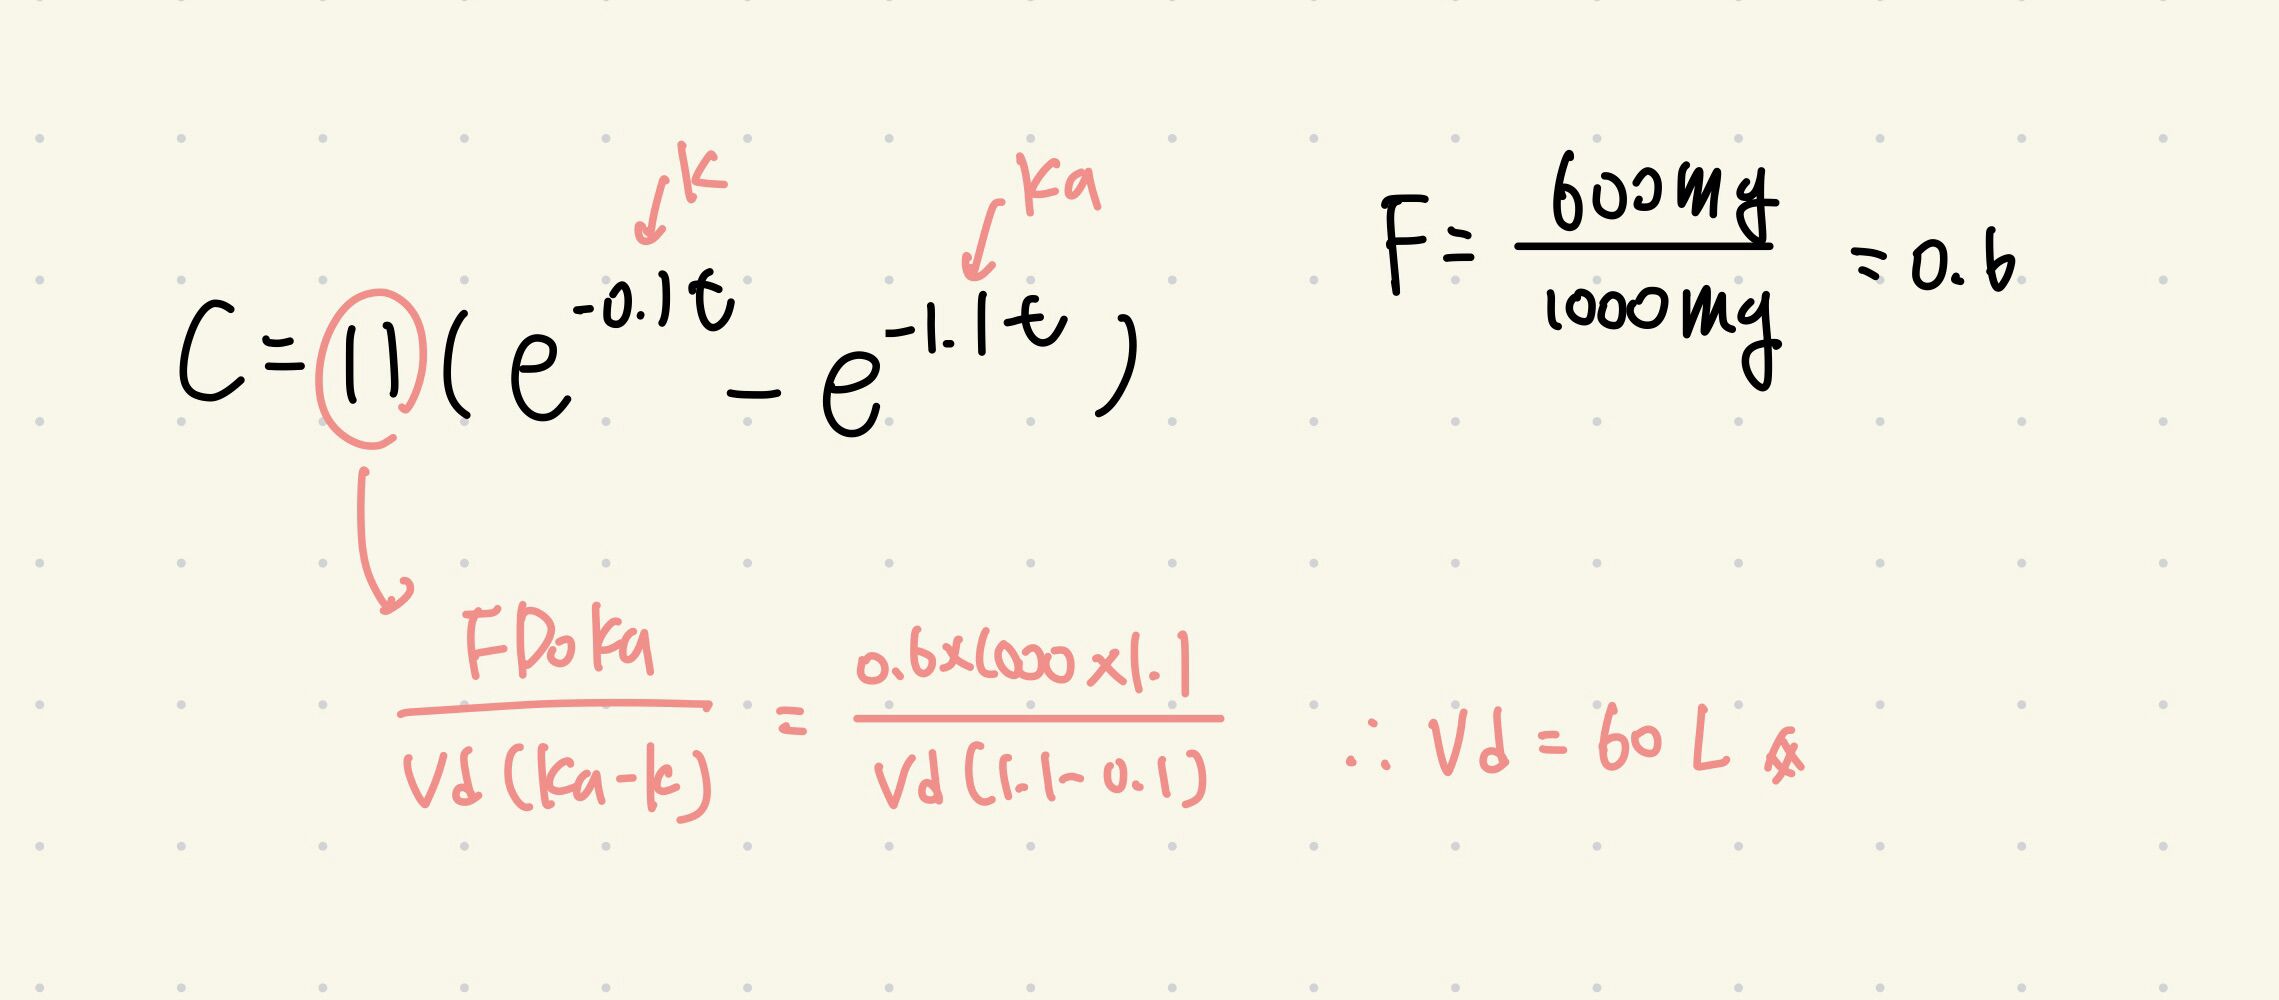 k
ka
C = 11 ( e^-0.1t - e^-1.1t )
F = 600mg / 1000mg = 0.6
FD₀ka / Vd (ka-k) = 0.6×1000×1.1 / Vd (1.1-0.1) ∴ Vd = 60 L